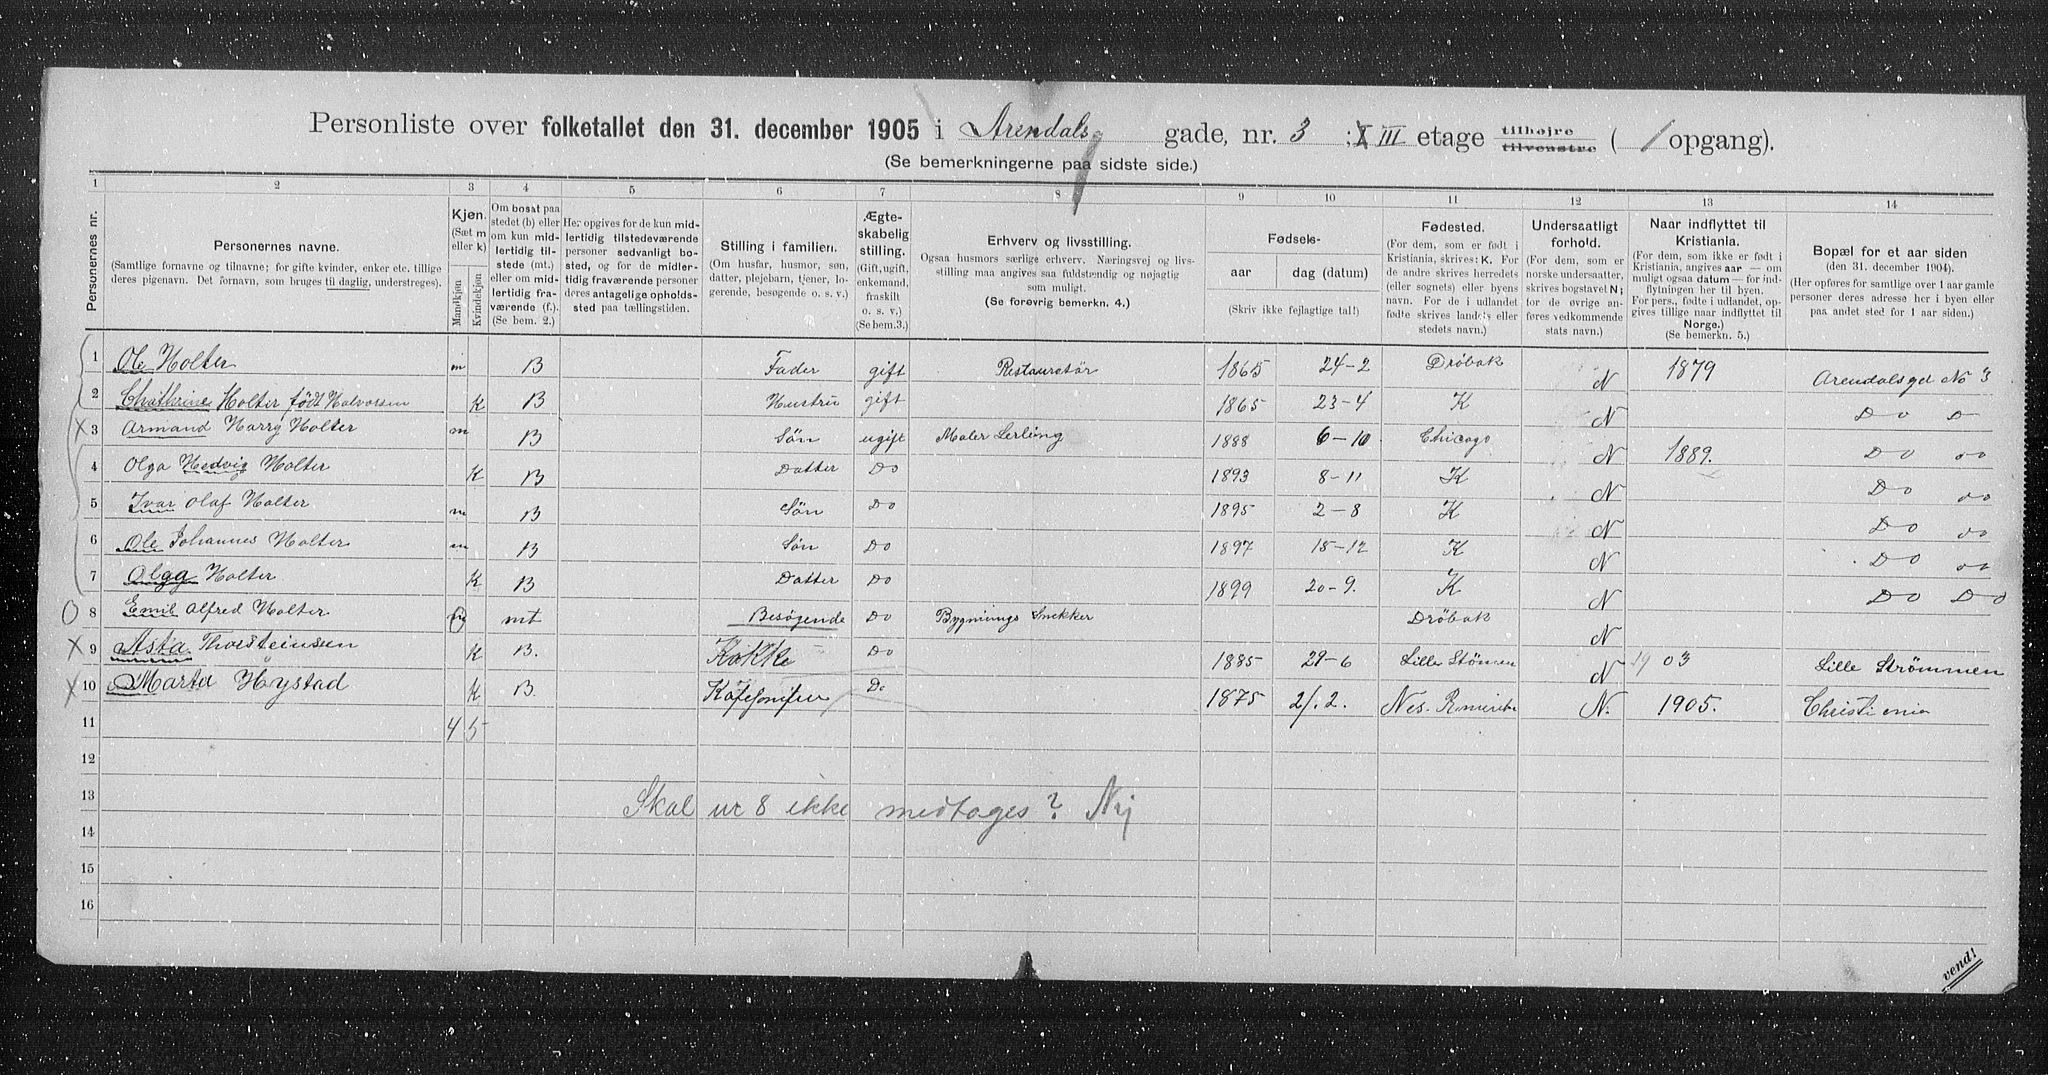 Personliste over folketallet den 31. december 1905 i Arendals gade, nr. 3 : III etage tilhøjre tilvenstre ( 1 opgang).
(Se bemerkningerne paa sidste side.)
1 2 3 4 5 6 7 8 9 10 11 12 13 14
Personernes nr.
Personernes navne.
(Samtlige fornavne og tilnavne; for gifte kvinder, enker etc. tillige deres pigenavn. Det fornavn, som bruges til daglig, understreges).
Kjøn.
(Sæt m eller k)
Mandkjøn
Kvindekjøn
Om bosat paa stedet (b) eller om kun midlertidig tilstede (mt.) eller om midlertidig fraværende (f.). (Se bem. 2.)
Her opgives for de kun midlertidig tilstedeværende personer sedvanligt bosted, og for de midlertidig fraværende personer deres antagelige opholdssted paa tællingstiden.
Stilling i familien.
(Om husfar, husmor, søn, datter, plejebarn, tjener, logerende, besøgende o. s. v.)
Ægteskabelig stilling.
(Gift, ugift, enkemand, fraskilt o. s. v.)
(Se bem.3.)
Erhverv og livsstilling.
Ogsaa husmors særlige erhverv. Næringsvej og livsstilling maa angives saa fuldstændig og nøjagtig som muligt.
(Se forøvrig bemerkn. 4.)
Fødsels-
aar
dag (datum)
(Skriv ikke fejlagtige tal!)
Fødested.
(For dem, som er født i Kristiania, skrives: K. For de andre skrives herredets (eller sognets) eller byens navn. For de i udlandet fødte skrives landets eller stedets navn.)
Undersaatligt forhold.
(For dem, som er norske undersaatter, skrives bogstavet N; for de øvrige anføres vedkommende stats navn.)
Naar indflyttet til Kristiania.
(For dem, som ikke er født i Kristiania, angives aar — om muligt ogsaa datum — for indflytningen her til byen. For pers., fødte i udlandet, opgives tillige naar indflyttet til Norge.)
(Se bemerkn. 5.)
Bopæl for et aar siden
(den 31. december 1904.)
(Her opføres for samtlige over 1 aar gamle personer deres adresse her i byen eller paa andet sted for 1 aar siden.)
1 Ole Holter m B Fader gift Restauratør 1865 24-2 Drøbak N 1879 Arendalsgd No 3
2 Chathrine Holter født Halvorsen K B Hustru gift 1865 23-4 K N Do D
X 3 Armand Harry Holter m B Søn ugift Maler Lerling 1888 6-10 Chicago N 1889. Do Do
4 Olga Hedvig Holter K B Datter Do 1893 8-11 K N Do Do
5 Ivar Olaf Holter m B Søn Do 1895 2-8 K N Do Do
6 Ole Johannes Holter m B Søn Do 1897 15-12 K N Do Do
7 Olga Holter K B Datter Do 1899 20-9. K N Do Do
O 8 Emil Alfred Holter m mt Besøgende Do Bygnings Snekker Drøbak N
X 9 Asta Thorsteinsen K B. Kokke Do 1885 29-6 Lille Stømen N 1903 Lille Strømmen
X 10 Marta Høystad K B. Do 1875 2/. 2. Nes. N. 1905. Christiania
11 4 5
12
13 Skal nr 8 ikke medtages? Nej
14
15
16
vend!